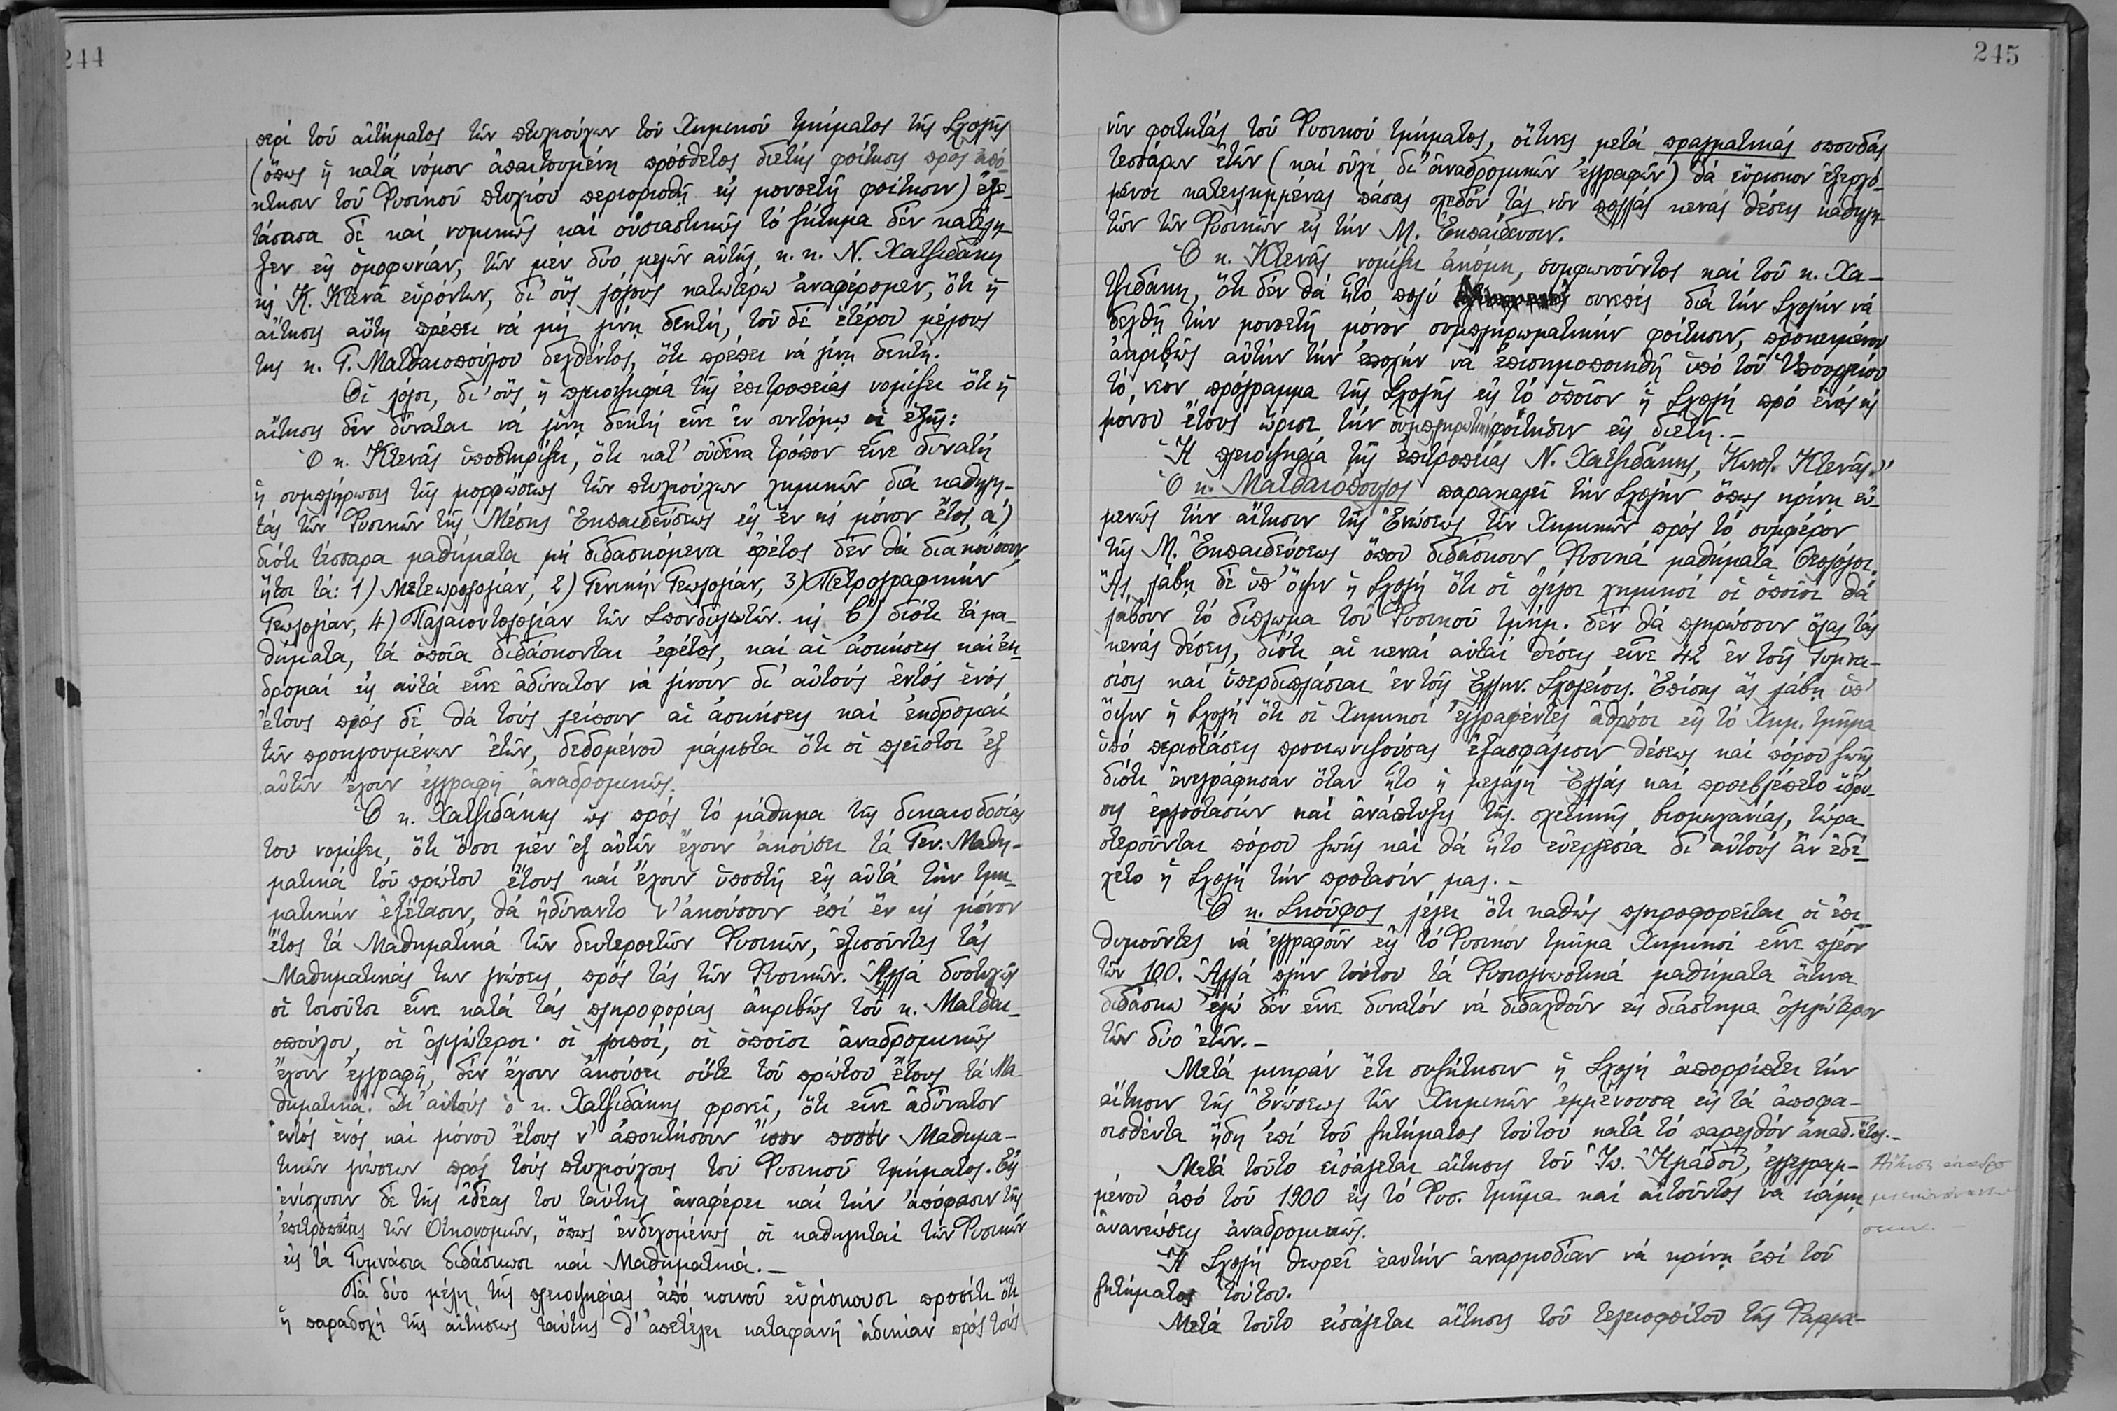 244
περί τοῦ αἰτήματος τῶν πτυχιούχων τοῦ Χημικοῦ τμήματος τῆς Σχολῆς
(ὅπως ἡ κατά νόμον ἀπαιτουμένη πρόσθετος διετής φοίτησις πρός ἀπό-
κτησιν τοῦ Φυσικοῦ πτυχίου περιορισθῇ εἰς μονοετῆ φοίτησιν) ἐξε-
τάσασα δέ καί νομικῶς καί οὐσιαστικῶς τό ζήτημα δέν κατέλη-
ξεν εἰς ὁμοφωνίαν, τῶν μέν δύο μελῶν αὐτῆς, κ. κ. Ν. Χατζιδάκη
κ Κ. Κτενᾶ εὑρόντων, δι' οὕς λόγους κατωτέρω ἀναφέρομεν, ὅτι ἡ
αἴτησις αὕτη πρέπει νά μή γίνῃ δεκτή, τοῦ δέ ἑτέρου μέλους
της κ. Γ. Ματθαιοπούλου δεχθέντος, ὅτι πρέπει νά γίνῃ δεκτή.
Οἱ λόγοι, δι' οὕς ἡ πλειοψηφία τῆς ἐπιτροπείας νομίζει ὅτι ἡ
αἴτησις δέν δύναται νά γίνῃ δεκτή εἶνε ἐν συντόμῳ οἱ ἑξῆς:
Ὁ κ. Κτενᾶς ὑποστηρίζει, ὅτι κατ' οὐδένα τρόπον εἶνε δυνατή
ἡ συμπλήρωσις τῆς μορφώσεως τῶν πτυχιούχων χημικῶν διά καθηγη-
τάς τῶν Φυσικῶν τῆς Μέσης Ἐκπαιδεύσεως εἰς ἕν κ μόνον ἔτος, α)
διότι τέσσαρα μαθήματα μή διδασκόμενα ἐφέτος δέν θά διακούσουν,
ἤτοι τά: 1) Μετεωρολογίαν, 2) Γενικήν Γεωλογίαν, 3) Πετρογραφικήν
Γεωλογίαν, 4) Παλαιοντολογίαν τῶν Σπονδυλωτῶν. κ β) διότι τά μα-
θήματα, τά ὁποῖα διδάσκονται ἐφέτος, καί αἱ ἀσκήσεις καί ἐκ-
δρομαί εἰς αὐτά εἶνε ἀδύνατον νά γίνουν δι' αὐτούς ἐντός ἑνός
ἔτους πρός δέ θά τούς λείπουν αἱ ἀσκήσεις καί ἐκδρομαί
τῶν προηγουμένων ἐτῶν, δεδομένου μάλιστα ὅτι οἱ πλεῖστοι ἐξ
αὐτῶν ἔχουν ἐγγραφῆ ἀναδρομικῶς.
Ὁ κ. Χατζιδάκης ὡς πρός τό μάθημα τῆς δικαιοδοσίας
του νομίζει, ὅτι ὅσοι μέν ἐξ αὐτῶν ἔχουν ἀκούσει τά Γεν. Μαθη-
ματικά τοῦ πρώτου ἔτους καί ἔχουν ὑποστῆ εἰς αὐτά τήν τμη-
ματικήν ἐξέτασιν, θά ἠδύναντο ν' ἀκούσουν ἐπί ἕν κ μόνον
ἔτος τά Μαθηματικά τῶν δευτεροετῶν Φυσικῶν, ἐξισοῦντες τάς
Μαθηματικάς των γνώσεις πρός τάς τῶν Φυσικῶν. Ἀλλά δυστυχῶς
οἱ τοιοῦτοι εἶνε κατά τάς πληροφορίας ἀκριβῶς τοῦ κ. Ματθαι-
οπούλου, οἱ ὀλιγώτεροι· οἱ λοιποί, οἱ ὁποῖοι ἀναδρομικῶς
ἔχουν ἐγγραφῆ, δέν ἔχουν ἀκούσει οὔτε τοῦ πρώτου ἔτους τά Μα-
θηματικά. Δι' αὐτούς ὁ κ. Χατζιδάκης φρονεῖ, ὅτι εἶνε ἀδύνατον
ἐντός ἑνός καί μόνου ἔτους ν' ἀποκτήσουν ἴσον ποσόν Μαθημα-
τικῶν γνώσεων πρός τούς πτυχιούχους τοῦ Φυσικοῦ τμήματος. Εἰς
ἐνίσχυσιν δέ τῆς ἰδέας του ταύτης ἀναφέρει καί τήν ἀπόφασιν τῆς
ἐπιτροπείας τῶν Οἰκονομιῶν, ὅπως ἐνδεχομένως οἱ καθηγηταί τῶν Φυσικῶν
εἰς τά Γυμνάσια διδάσκωσι καί Μαθηματικά.-
Τά δύο μέλη τῆς πλειοψηφίας ἀπό κοινοῦ εὑρίσκουσι προσέτι ὅτι
ἡ παραδοχή τῆς αἰτήσεως ταύτης θ' ἀπετέλει καταφανῆ ἀδικίαν πρός τούς
245
νῦν φοιτητάς τοῦ Φυσικοῦ τμήματος, οἵτινες μετά πραγματικάς σπουδάς
τεσσάρων ἐτῶν (καί οὐχί δι' ἀναδρομικῶν ἐγγραφῶν) θά εὕρισκον ἐξερχό-
μενοι κατειλημμένας πάσας σχεδόν τάς νῦν πολλάς κενάς θέσεις καθηγη-
τῶν τῶν Φυσικῶν εἰς τήν Μ. Ἐκπαίδευσιν.
Ὁ κ. Κτενᾶς νομίζει ἀκόμη, συμφωνοῦντος καί τοῦ κ. Χα-
τζιδάκη, ὅτι δέν θά ἦτο πολύ συνεπές διά τήν Σχολήν νά
δεχθῇ τήν μονοετῆ μόνον συμπληρωματικήν φοίτησιν, προκειμένου
ἀκριβῶς αὐτήν τήν ἐποχήν νά ἐπισημοποιηθῇ ὑπό τοῦ Ὑπουργείου
τό νέον πρόγραμμα τῆς Σχολῆς εἰς τό ὁποῖον ἡ Σχολή πρό ἑνός κ
μόνου ἔτους ὥρισε τήν συμπληρωτικήν φοίτησιν εἰς διετῆ.-
Ἡ πλειοψηφία τῆς ἐπιτροπείας Ν. Χατζιδάκης, Κωνστ. Κτενᾶς."
Ὁ κ. Ματθαιόπουλος παρακαλεῖ τήν Σχολήν ὅπως κρίνῃ εὐ-
μενῶς τήν αἴτησιν τῆς Ἑνώσεως τῶν Χημικῶν πρός τό συμφέρον
τῆς Μ. Ἐκπαιδεύσεως ὅπου διδάσκουν Φυσικά μαθήματα Θεολόγοι.
Ἄς λάβῃ δέ ὑπ' ὄψιν ἡ Σχολή ὅτι οἱ ὀλίγοι χημικοί οἱ ὁποῖοι θά
λάβουν τό δίπλωμα τοῦ Φυσικοῦ τμήμ. δέν θά πληρώσουν ὅλας τάς
κενάς θέσεις, διότι αἱ κεναί αὐταί θέσεις εἶνε 42 ἐν τοῖς Γυμνα-
σίοις καί ὑπερδιπλάσιαι ἐν τοῖς Ἑλλην. Σχολείοις. Ἐπίσης ἄς λάβῃ ὑπ'
ὄψιν ἡ Σχολή ὅτι οἱ Χημικοί ἐγγραφέντες ἀθρόοι εἰς τό Χημ. τμῆμα
ὑπό περιστάσεις προοιωνιζούσας ἐξασφάλισιν θέσεως καί πόρου ζωῆς
διότι ἐνεγράφησαν ὅταν ἦτο ἡ μεγάλη Ἑλλάς καί προεβλέπετο ἵδρυ-
σις ἐργοστασίων καί ἀνάπτυξις τῆς σχετικῆς βιομηχανίας, τώρα
στεροῦνται πόρου ζωῆς καί θά ἦτο εὐεργεσία δι' αὐτούς ἄν ἐδέ-
χετο ἡ Σχολή τήν πρότασίν μας.-
Ὁ κ. Σκοῦφος λέγει ὅτι καθώς πληροφορεῖται οἱ ἐπι-
θυμοῦντες νά ἐγγραφοῦν εἰς τό Φυσικόν τμῆμα Χημικοί εἶνε πλέον
τῶν 100. Ἀλλά πλήν τούτου τά Φυσιογνωστικά μαθήματα ἅτινα
διδάσκω ἐγώ δέν εἶνε δυνατόν νά διδαχθοῦν εἰς διάστημα ὀλιγώτερον
τῶν δύο ἐτῶν.-
Μετά μικράν ἔτι συζήτησιν ἡ Σχολή ἀπορρίπτει τήν
αἴτησιν τῆς Ἑνώσεως τῶν Χημικῶν ἐμμένουσα εἰς τά ἀποφα-
σισθέντα ἤδη ἐπί τοῦ ζητήματος τούτου κατά τό παρελθόν ἀκαδ. ἔτος.-
Μετά τοῦτο εἰσάγεται αἴτησις τοῦ Ἰω. ἐγγεγραμ-
μένου ἀπό τοῦ 1900 εἰς τό Φυσ. τμῆμα καί αἰτοῦντος νά κάμῃ
ἀνανεώσεις ἀναδρομικῶς.
Αἴτησις ἀναδρο
Ἡ Σχολή θεωρεῖ ἑαυτήν ἀναρμοδίαν νά κρίνῃ ἐπί τοῦ
ζητήματος τούτου.
Μετά τοῦτο εἰσάγεται αἴτησις τοῦ τελειοφοίτου τῆς Φαρμα-